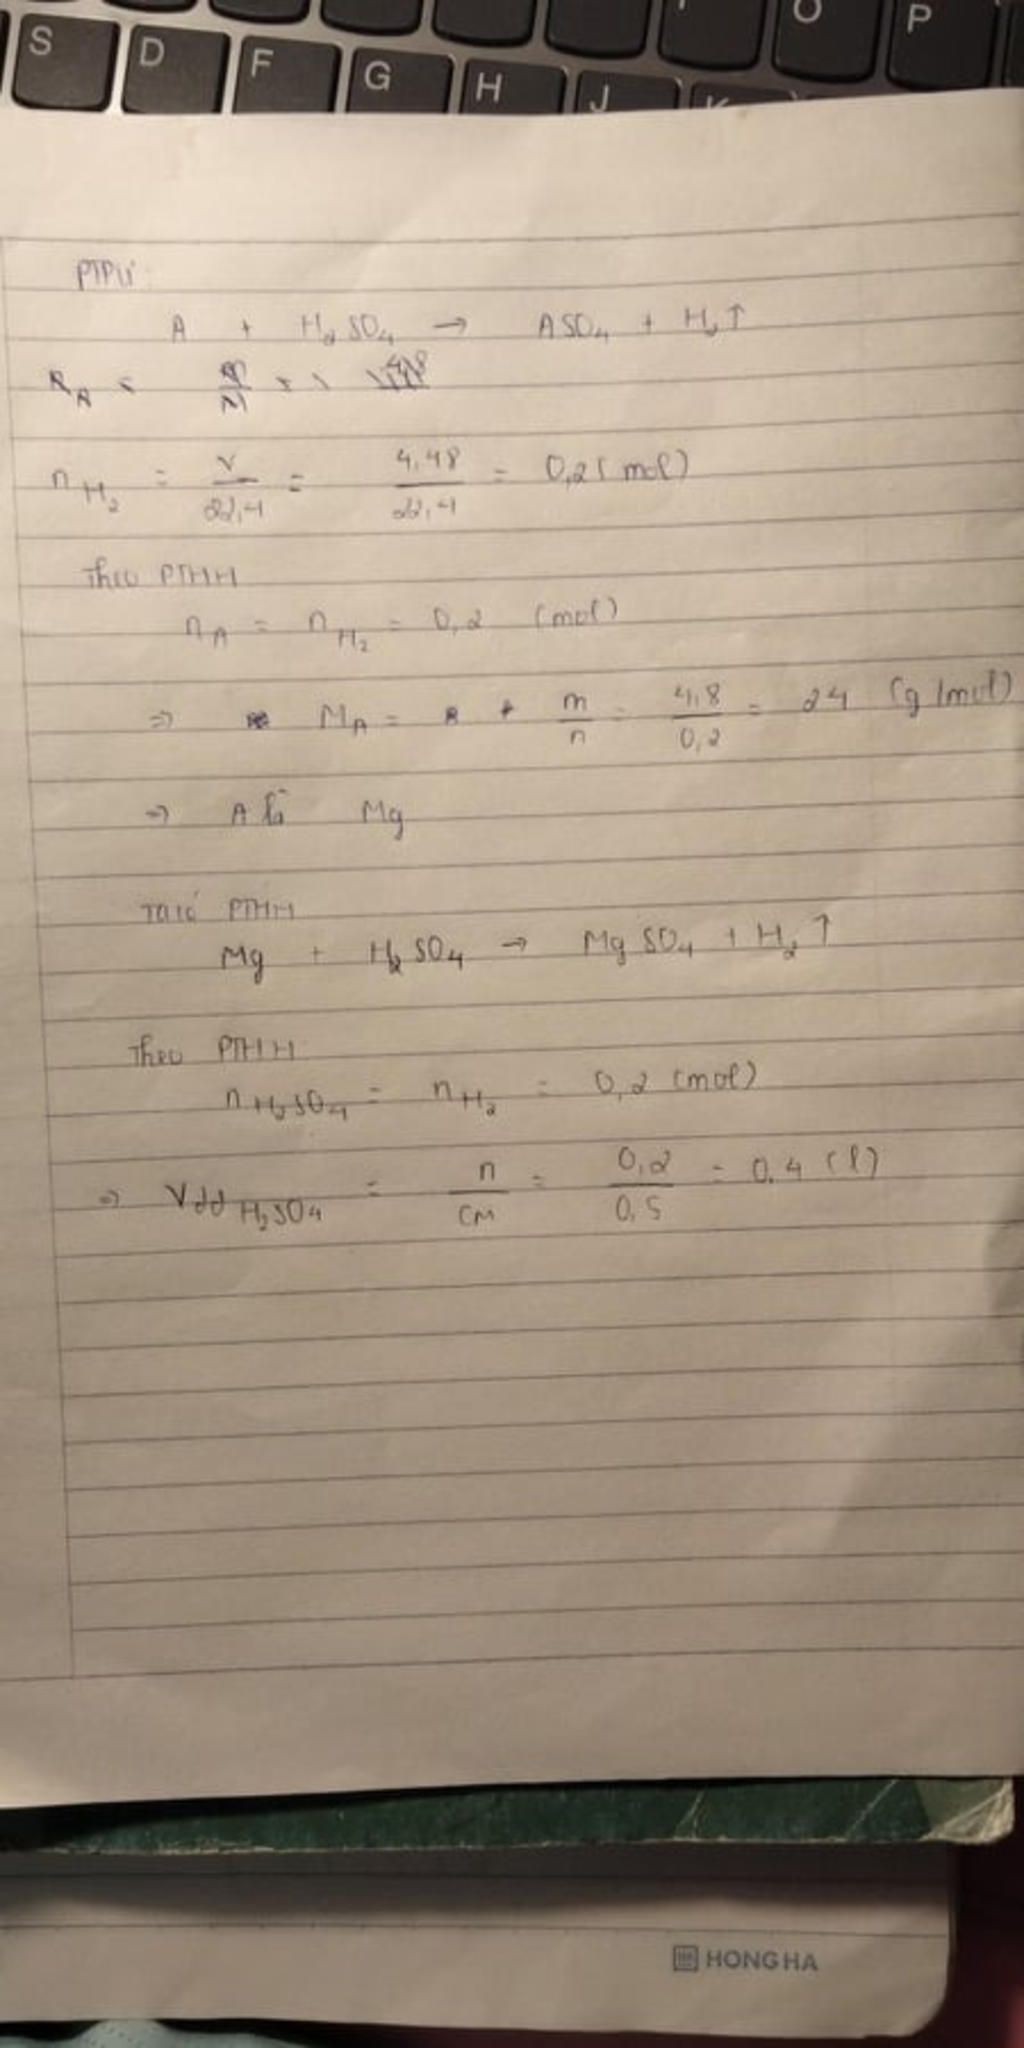 O P
S D F G H J K
PTPƯ:
A + H2SO4 → ASO4 + H2↑
nH2 = V/22,4 = 4,48/22,4 = 0,2 (mol)
Theo PTHH
nA = nH2 = 0,2 (mol)
⇒ MA = m/n = 4,8/0,2 = 24 (g/mol)
⇒ A là Mg
Ta có PTHH
Mg + H2SO4 → MgSO4 + H2↑
Theo PTHH
nH2SO4 = nH2 = 0,2 (mol)
⇒ Vdd H2SO4 = n/CM = 0,2/0,5 = 0,4 (l)
HONG HA